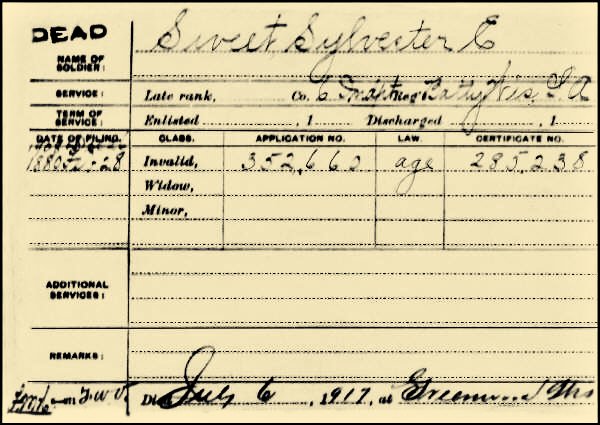 DEAD
NAME OF SOLDIER:
Sweet, Sylvester E
SERVICE:
Late rank, Co. 6 Batty Wis. L A
TERM OF SERVICE:
Enlisted , 1 Discharged , 1
DATE OF FILING. CLASS. APPLICATION NO. LAW. CERTIFICATE NO.
1880 28 Invalid, 352,660 age 285,238
Widow,
Minor,
ADDITIONAL SERVICES:
REMARKS:
July 6, 1917, at